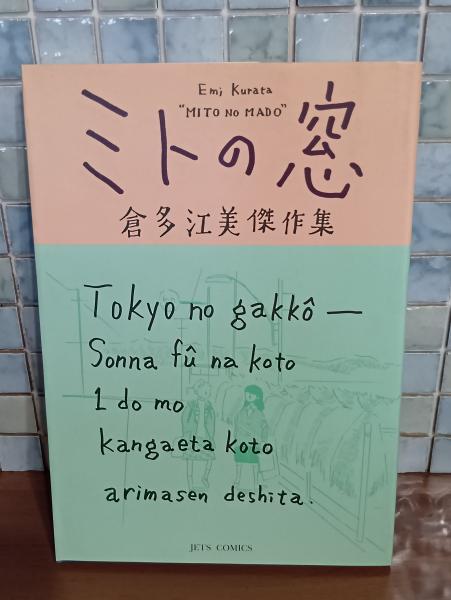 Emi Kurata
"MITO NO MADO"
ミトの窓
倉多江美傑作集
Tokyo no gakkô —
Sonna fû na koto
1 do mo
kangaeta koto
arimasen deshita.
JETS COMICS